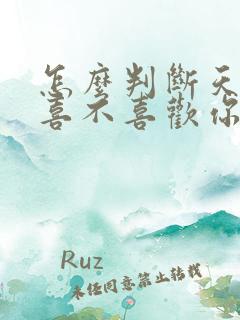 怎麼判斷天
喜不喜歡你
Ruz
未经同意禁止转载